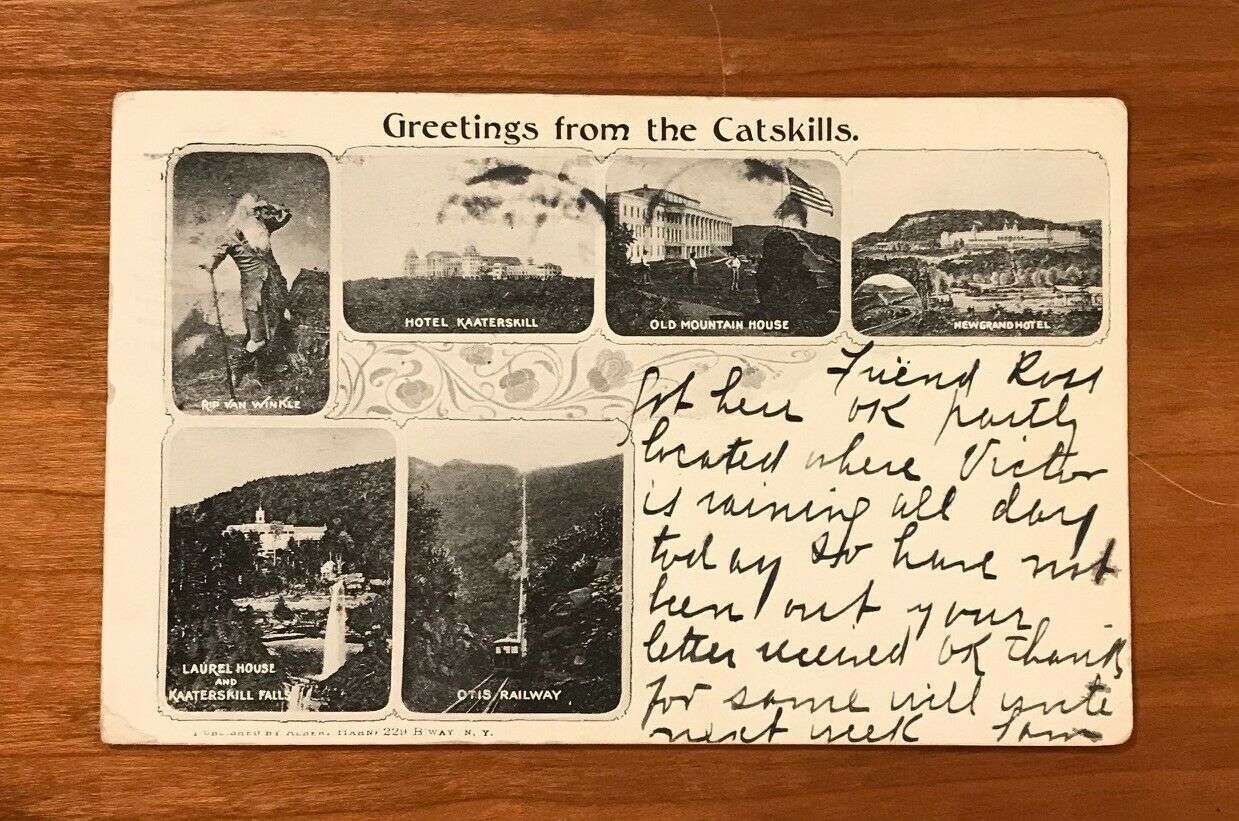 Greetings from the Catskills.
RIP VAN WINKLE
HOTEL KAATERSKILL
OLD MOUNTAIN HOUSE
NEW GRAND HOTEL
LAUREL HOUSE
AND
KAATERSKILL FALLS
OTIS RAILWAY
Friend Ross
Got here OK partly
located where Victor
is raining all day
today so have not
been out your
letter received OK thanks
for same will write
next week
PUBLISHED BY 229 B'WAY N. Y.